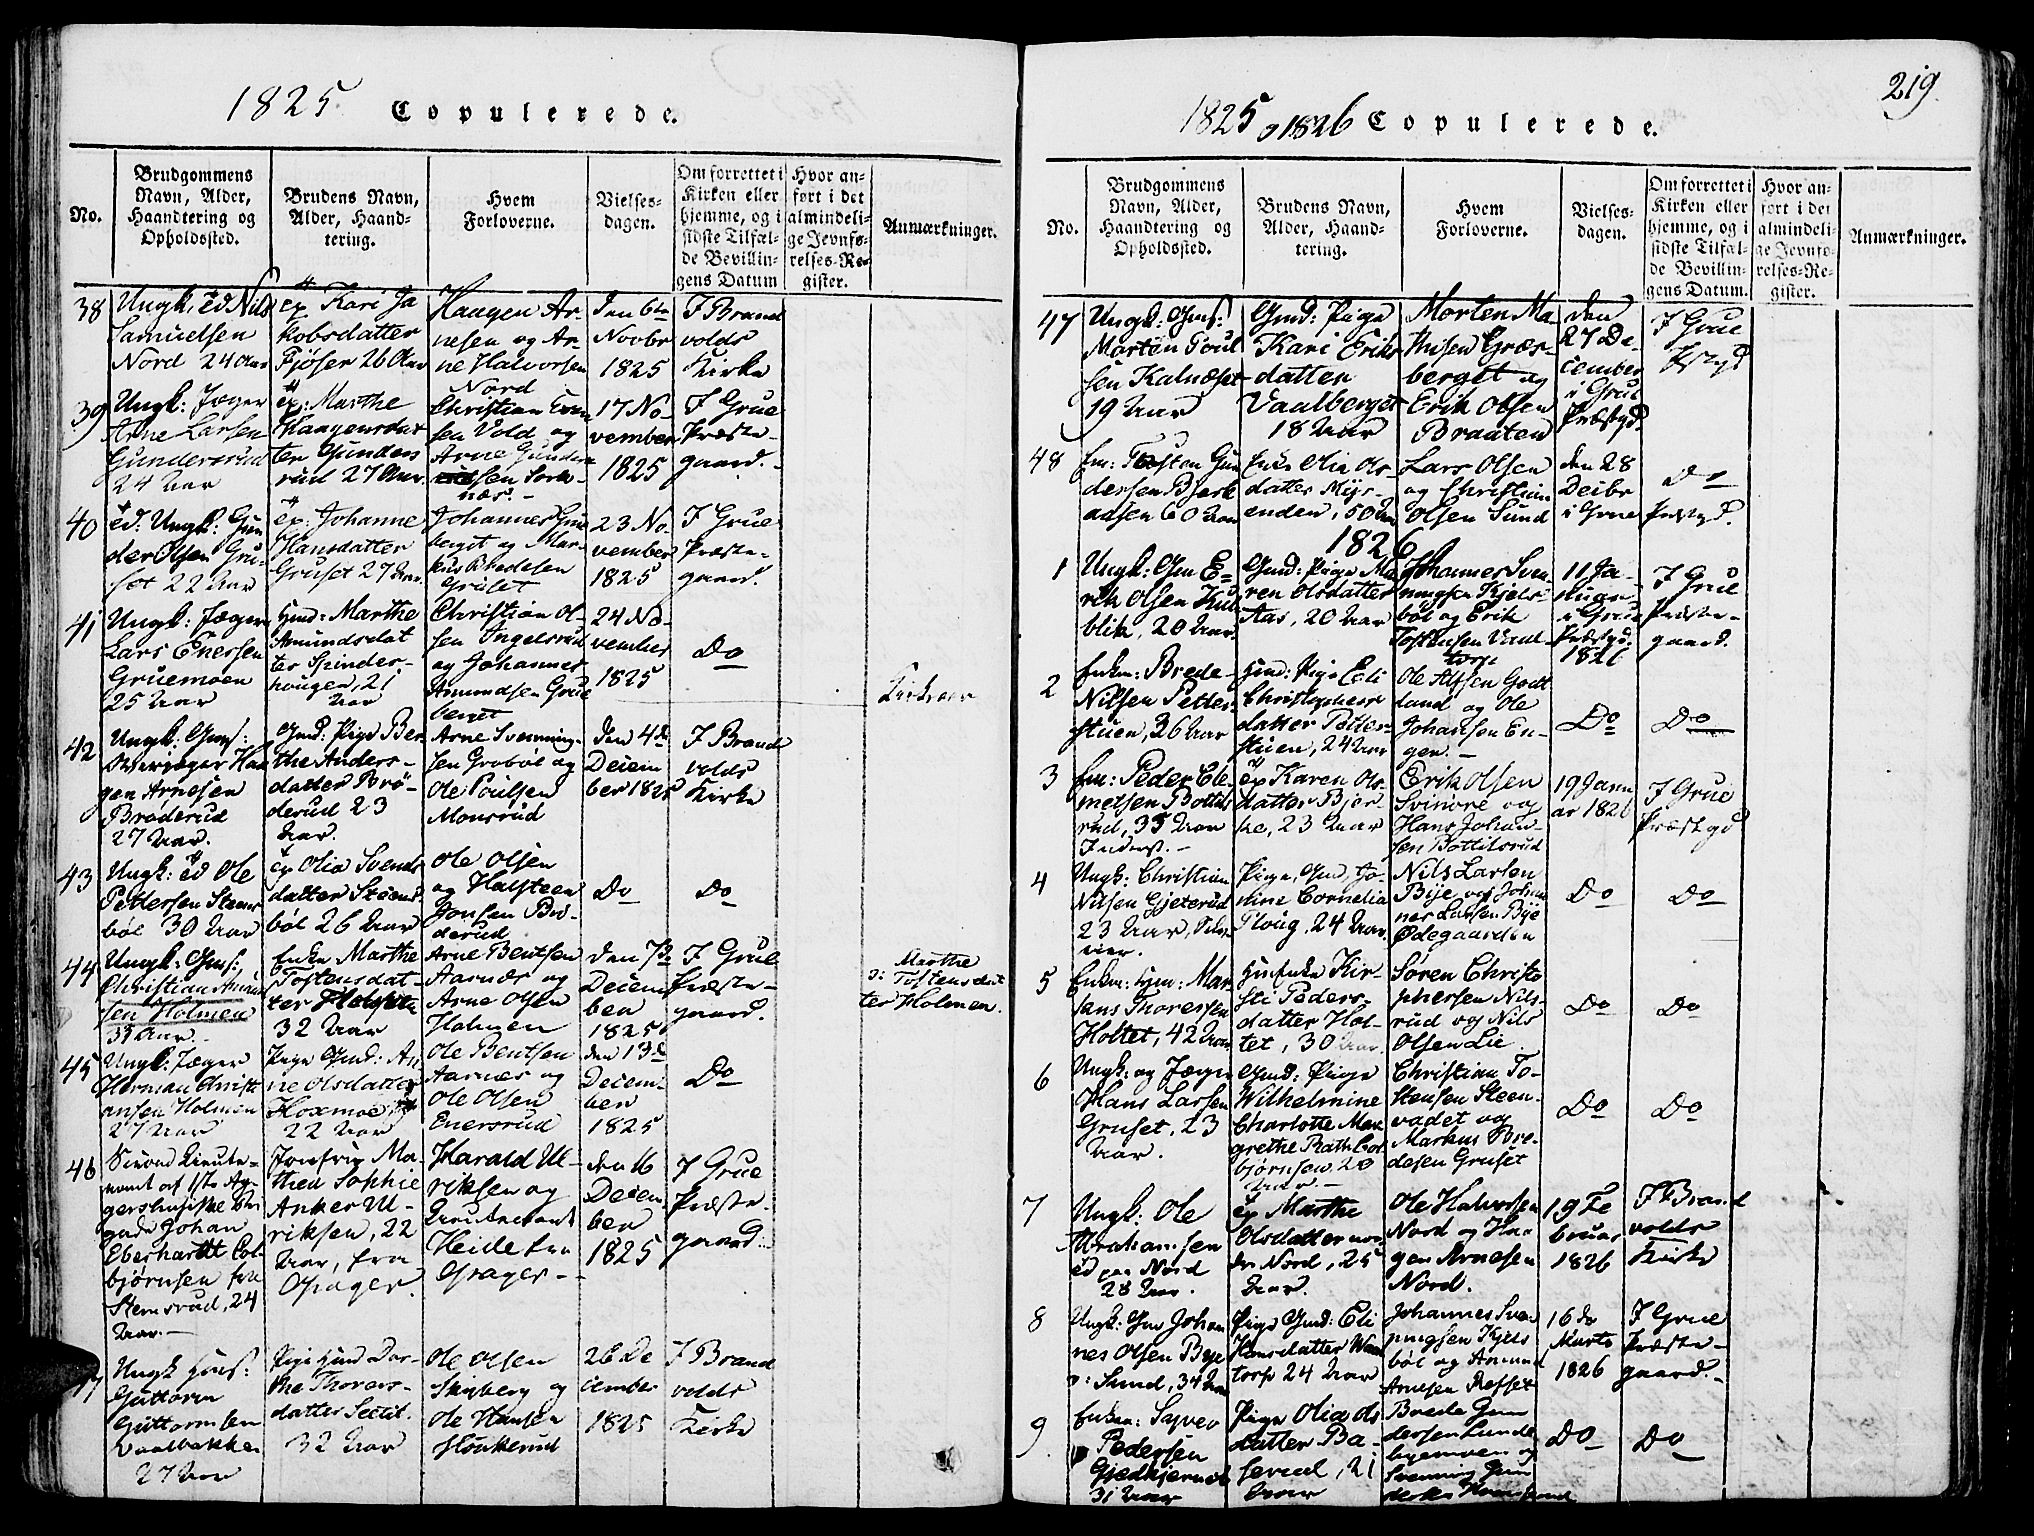 1825 Copulerede.
No.
Brudgommens
Navn, Alder,
Haandtering og
Opholdssted.
Brudens Navn,
Alder, Haand-
tering.
Hvem
Forloverne.
Vielses-
dagen.
Om forrettet i
Kirken eller
hjemme, og i
sidste Tilfæl-
de Bevillin-
gens Datum
Hvor an-
ført i det
almindeli-
ge Jevnfø-
relses-Re-
gister.
Anmærkninger.
38
Ungk. ed Nils
Samuelsen
Nord 24 Aar
ep Kari Ja
kobsdatter
Fjöser 26 Aar
Haagen Ar-
nesen og Ar-
ne Halvorsen
Nord
den 6te
Novbr
1825
I Brand
volds
Kirke
39
Ungk: Jæger
Arne Larsen
Gundersrud
24 Aar
ep: Marthe
Haagensdat
ter Gunders
rud 27 Aar
Christian Even
sen Vold og
Arne Gunder
sen Sork-
næs.-
17 No-
vember
1825
I Grue
Præste-
gaard.-
40
ed: Ungk: Gun
der Olsen Gru-
set 22 Aar
ep. Johanne
Hansdatter
Gruset 27 Aar.
Johannes Grue
berget og Mar-
kus Bredesen
Gruset
23 No-
vember
1825
I Grue
Præste-
gaard.
41
Ungk: Jæger
Lars Enersen
Gruemoen
25 Aar
Marthe
Amundsdat
ter Spinder-
hougen, 21
Aar
Christian Ol-
sen Ingelsrud
og Johannes
Amundsen Grue
berget
24 No-
vember
1825
Do
42
Ungk: Gms:
Haa
gen Arnesen
Bröderud
27 Aar.
Gmd: Pige Ber-
the Anders-
datter Brö-
derud 23
Aar.
Arne Svenning-
sen Grobøl og
Ole Poulsen
Monsrud
den 4de
Deiem
ber 1825
I Brand
volds
Kirke
43
Ungk: ed Ole
Pettersen Steens
böl 30 Aar
ep Olia Svends
datter Steens
böl 26 Aar
Ole Olsen
og Halsteen
Jonsen Brö-
derud
Do
Do
44
Ungk: Gms:
Christian
sen Holmen
Enke Marthe
Tostensdat-
ter
32 Aar
Arne Bentsen
Aarnæs og
Arne Olsen
Holmen
den 7de
Deiem
ber
1825
I Grue
Præste-
gaard.
Marthe
Tostensdat
ter Holmen.
45
Ungk: Jæger
Herman Christi
ansen Holmen
27 Aar
Pige Gmd: An
ne Olsdatter
22 Aar
Ole Bentsen
Aarnæs og
Ole Olsen
Enersrud
den 13de
Deiem-
ber
1825
Do
46
Second Lieute-
nant af 1ste Ag-
gershusiske Bri
gade Johan
Eberhardt Col-
björnsen fra
Stemsrud, 24
Aar.-
Jomfrue Ma-
thea Sophie
Anker Ul-
riksen, 22
Aar, fra
Opager.
Harald Ul-
riksen og
Lieutenant
Heide fra
Opager-
den 16
Deiem-
ber
1825
I Grue
Præste-
gaard.
47
Ungk
Guttorm
Guttormsen
Vaalbakken
27 Aar
Pige Dor-
the Thores-
datter
32 Aar
Ole Olsen
Skyberg og
Ole Hansen
26 De
cember
1825
I Brand
volds
Kirke
219.
1825 og 1826 Copulerede.
No.
Brudgommens
Navn, Alder,
Haandtering og
Opholdssted.
Brudens Navn,
Alder, Haand-
tering.
Hvem
Forloverne.
Vielses-
dagen.
Om forrettet i
Kirken eller
hjemme, og i
sidste Tilfæl-
de Bevillin-
gens Datum.
Hvor an-
ført i det
almindeli-
ge Jevnfø-
relses-Re-
gister.
Anmærkninger.
47
Ungk: Gms:
Marten Poul
sen Kalnæset
19 Aar
Gmd: Pige
Kari Eriks
datter
Vaalberget
18 Aar
Morten Ma
thisen Græs-
berget og
Erik Olsen
Braaten
den
27 De-
cember
i Grue
Præstgd.
I Grue
Pstgd
48
Em: Tosten Gun
dersen Bjerk
aasen 60 Aar
Enke Olia Ols
datter Myr-
enden, 50 Aar
Lars Olsen
og Christian
Olsen Sund
den 28
Deibr
i Grue
Do
Præstgd.
1826
1
Ungk: Gm E-
rik Olsen Kub
blik, 20 Aar
Gmd: Pige Ma
ren Olsdatter
Aas, 20 Aar
Johannes Sven-
ningsen Kjels-
böl og Erik
Tostensen Vaal-
torp
11 Ja-
nuar
i Grue
Præstgd:
1826
I Grue
Præste-
gaard.
2
Enkm: Brede-
Nilsen Petter
stuen, 36 Aar
Gmd: Pige Eli
Christophers
datter Petter-
stuen, 24 Aar
Ole Godt
land og Ole
Johansen En-
gen.-
Do
Do
3
Em: Peder Cle-
metsen Bottils
rud, 35 Aar
Inderst.-
ep Karen Ols-
datter Bjer-
ke, 23 Aar
Erik Olsen
og
Hans Johan-
sen Bottilsrud
19 Janu
ar 1826
I Grue
Præstgd
4
Ungk: Christian
Nilsen Gjeterud
23 Aar,
Pige, Gmd, Jo-
nine Cornelia
Ploug, 24 Aar.
Nils Larsen
Bye og Johan
nes Larsen Bye
Ødegaarden
Do
Do
5
Enkm: Mar-
Thoresen
Holtet, 42 Aar
Kir-
sti Peders-
datter Hol-
tet, 30 Aar.
Søren Christo
phersen Nils-
rud og Nils
Olsen Lie.
Do
Do
6
Ungk: og Jæger
Hans Larsen
Gruset, 23
Aar.
Gmd: Pige
Wilhelmine
Charlotte Mar
grethe Rath Col
björnsen, 20
Aar.-
Christian To-
stensen Steen-
vadet og
Markus Bre-
desen Gruset
Do
Do
7
Ungk: Ole
Abrahamsen
ed paa Nord
28 Aar.
ep Marthe
Olsdatter
Nord, 25
Aar.
Ole Halvorsen
Nord og Haa
gen Arnesen
Nord.
19 Fe
bruar
1826
I Brand
volds
Kirke
8
Ungk: Gm Johan
nes Olsen Bye
Sund, 34 Aar
Pige Gmd: Eli
Hansdatter
torp 24 Aar
Johannes Sven
ningsen Kjels
böl og Amund
Arnesen
16de
Marts
1826
I Grue
Præste-
gaard.-
9.
Enkm:
Pedersen
31 Aar
Pige Olia Ols
datter Ba-
serud, 21
Aar
Brede Gun
dersen Lunde
byemoen og
Svenning Gun
dersen
Do
Do